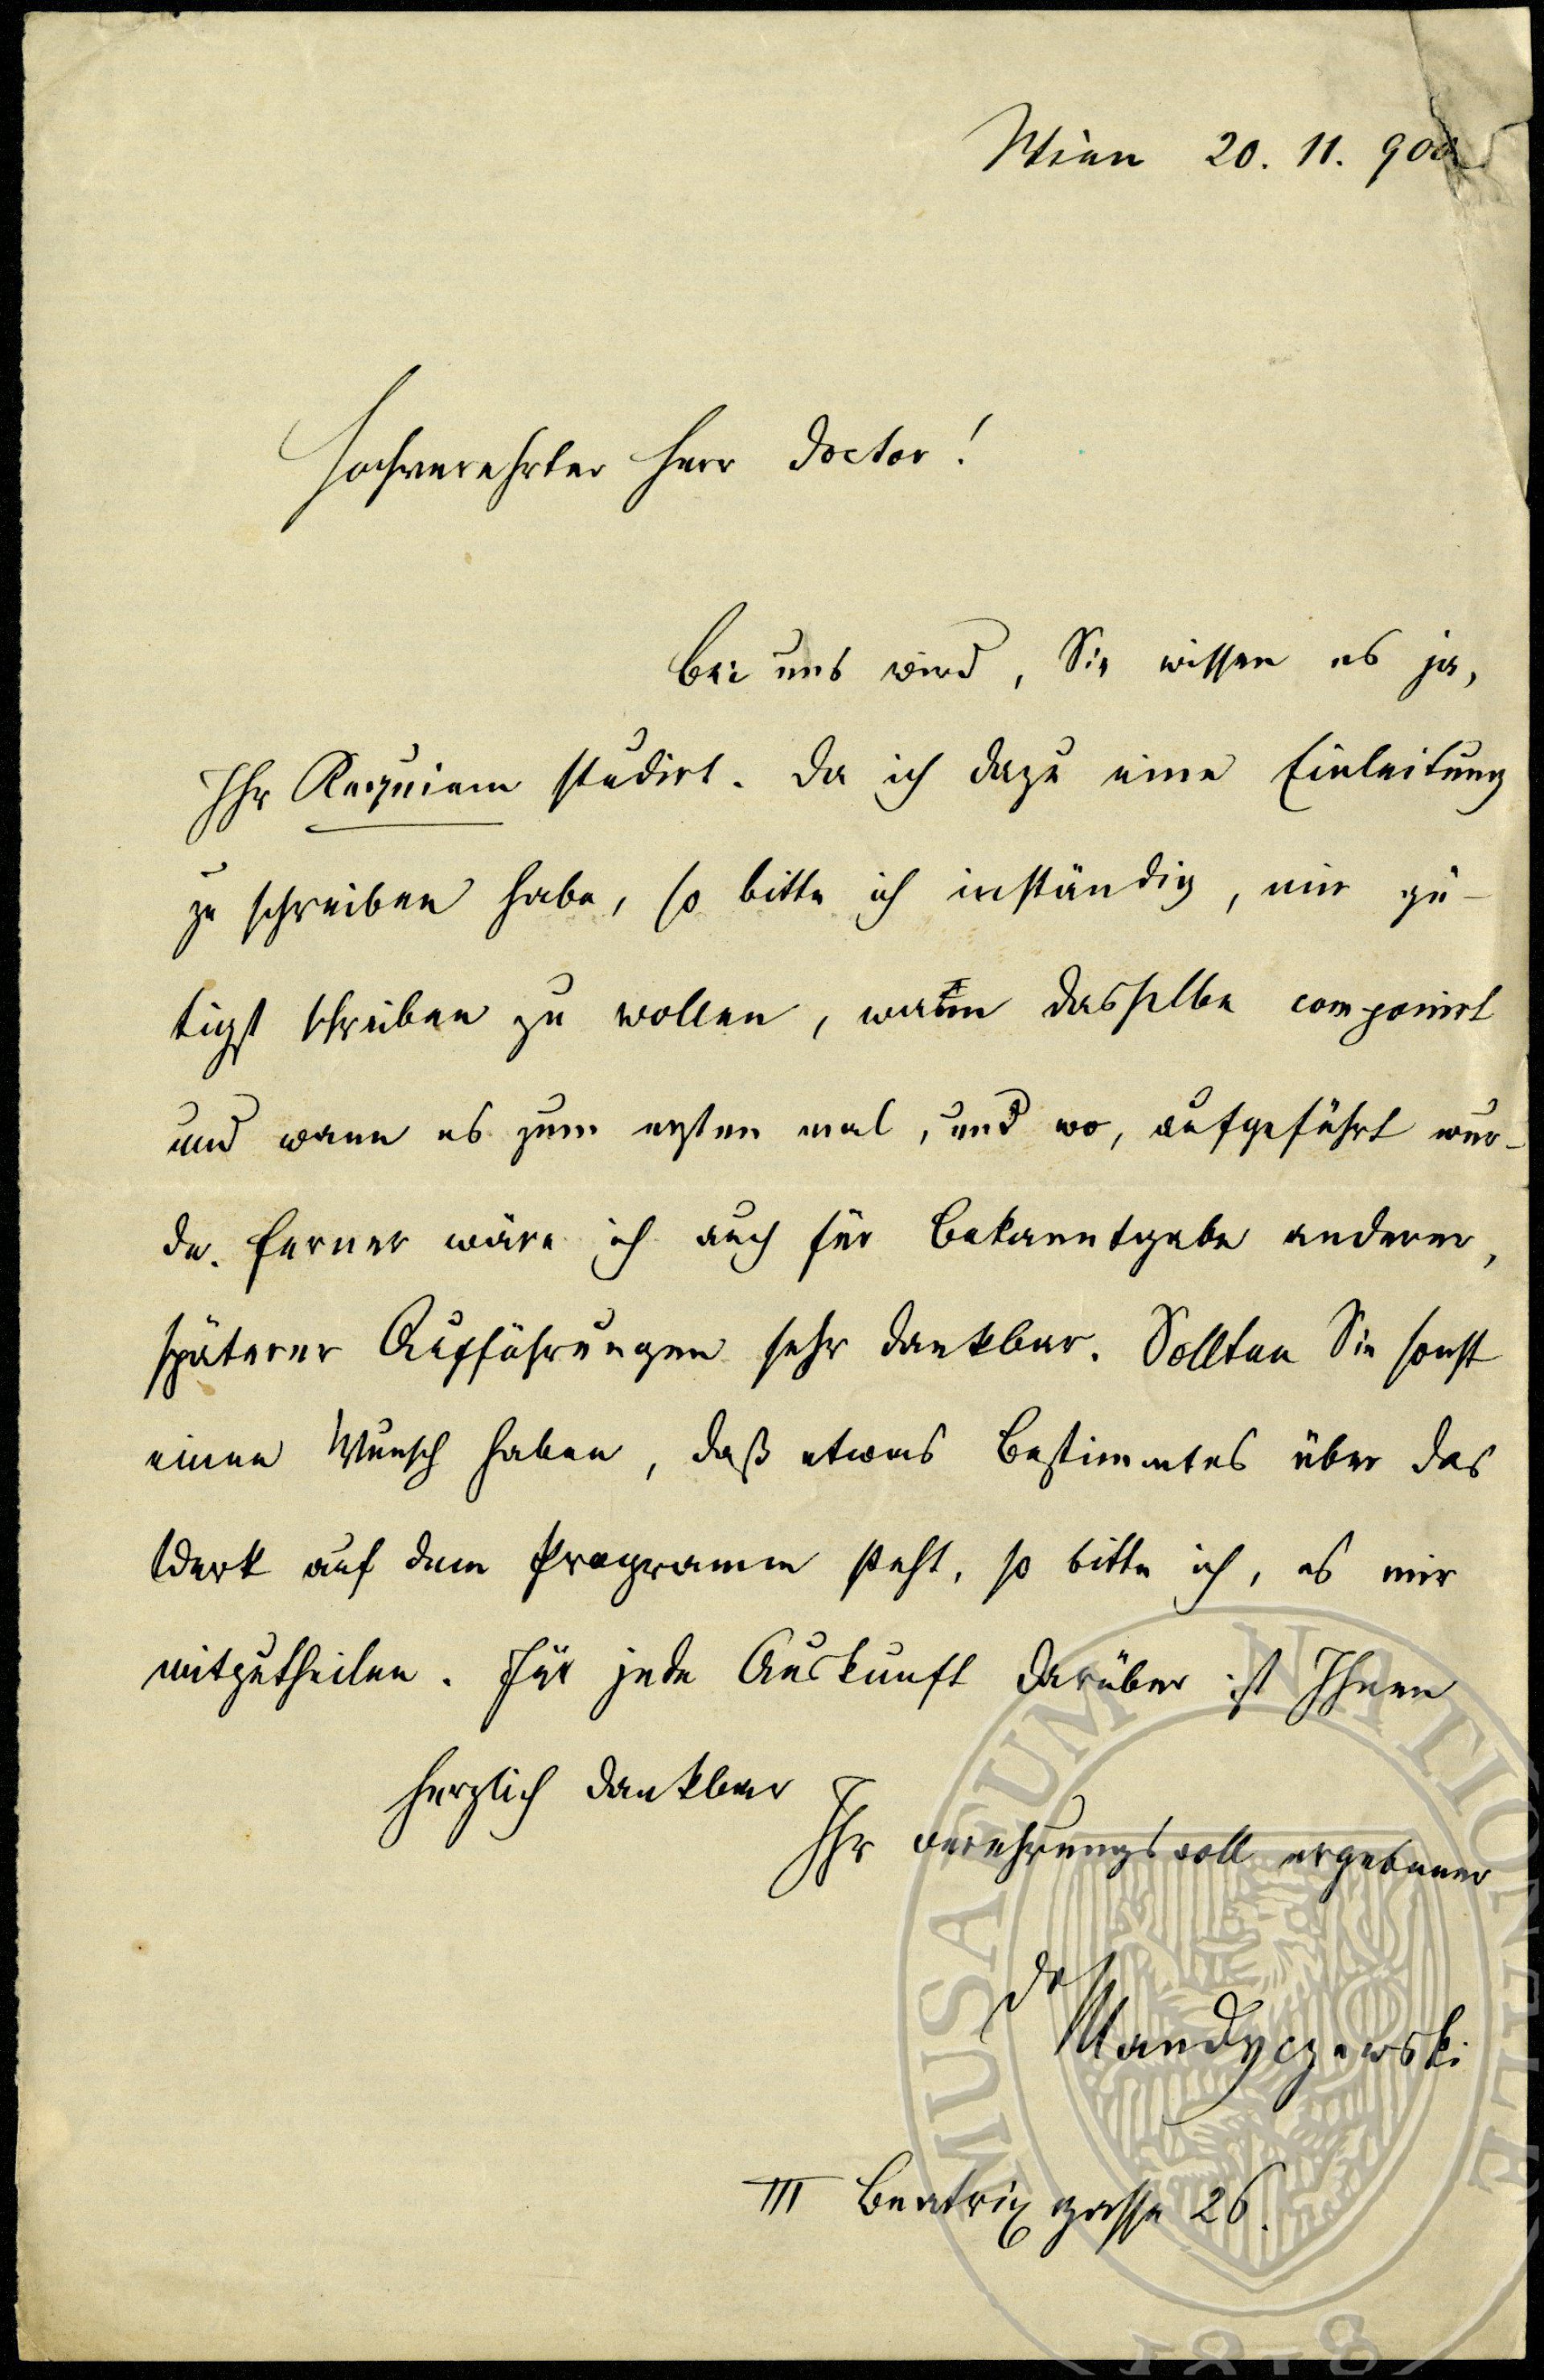 Wien 20. 11. 900
Hochverehrter Herr Doctor!
Bei uns wird, Sie wissen es ja,
Ihr Requiem studirt. Da ich dazu eine Einleitung
zu schreiben habe, so bitte ich inständig, mir gü-
tigst schreiben zu wollen, wann dasselbe componirt
und wann es zum ersten mal, und wo, aufgeführt wur-
de. Ferner wäre ich auch für Bekanntgabe anderer,
späterer Aufführungen sehr dankbar. Sollten Sie sonst
einen Wunsch haben, daß etwas Bestimmtes über das
Werk auf dem Programm steht, so bitte ich, es mir
mitzutheilen. Für jede Auskunft darüber ist Ihnen
herzlich dankbar
Ihr verehrungsvoll ergebener
Dr Mandyczewski
III Beatrixgasse 26.
MUSAEUM NATIONALE
1818